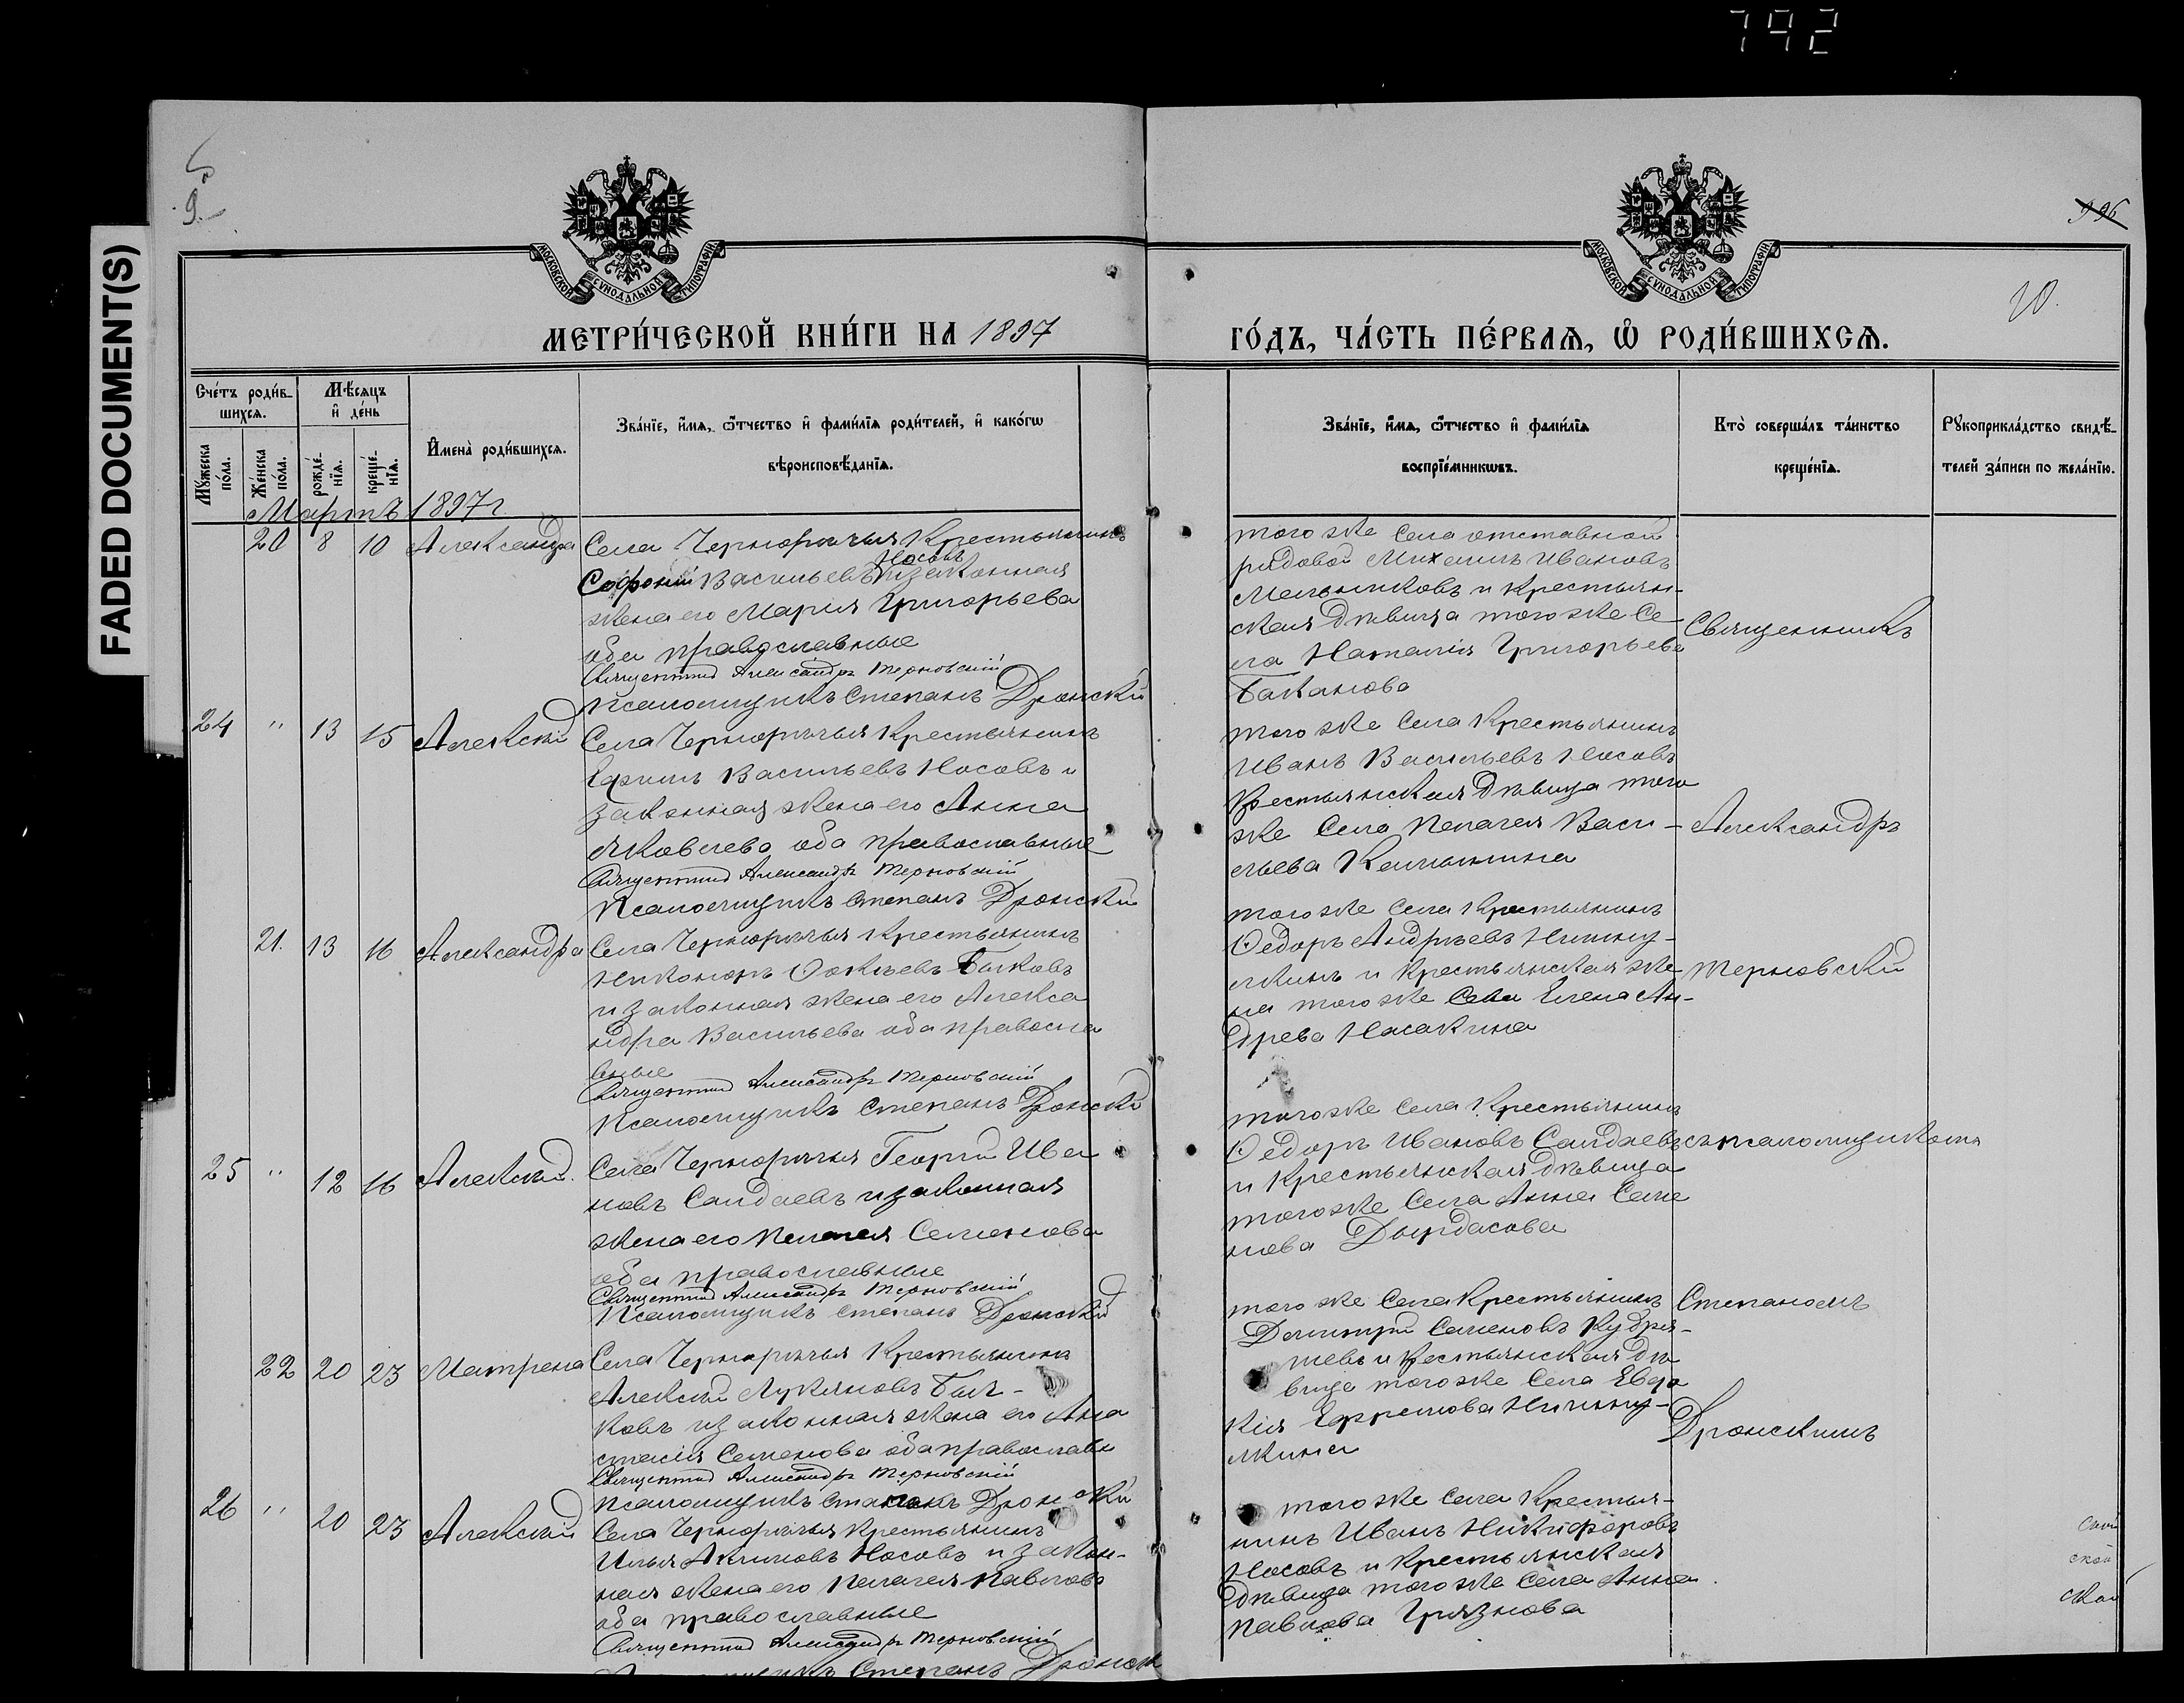 792
FADED DOCUMENT(S)
9.
996
10.
МОСКОВСКОЙ СѴНОДАЛЬНОЙ ТИПОГРАФІИ
МОСКОВСКОЙ СѴНОДАЛЬНОЙ ТИПОГРАФІИ
МЕТРИ́ЧЕСКОЙ КНИ́ГИ НА 1897
ГО́ДЪ, ЧА́СТЬ ПЕ́РВАѦ, Ѽ РОДИ́ВШИХСѦ.
Сче́тъ роди́в-
шихсѧ.
Мѣ́сѧцъ
и҆ де́нь
Мꙋ́жеска
по́ла.
Же́нска
по́ла.
рожде́-
нїѧ.
креще́-
нїѧ.
И҆мена̀ роди́вшихсѧ.
Зва́нїе, и҆́мѧ, ѻ҆́тчество и҆ фамѝлїѧ роди́телей, и҆ како́гѡ
вѣроисповѣ́данїѧ.
Зва́нїе, и҆́мѧ, ѻ҆́тчество и҆ фами́лїѧ
воспрїе́мникѡвъ.
Кто̀ соверша́лъ та́инство
креще́нїѧ.
Рꙋкоприкла́дство свидѣ́-
телей за́писи по жела́нїю.
Мартъ 1897 г.
20 8 10 Александра
Села Чернорѣчья Крестьянинъ
Носовъ
Софоній Васильевъ и законная
жена его Марія Григорьева
оба православные
Священникъ Александръ Терновскій
Псаломщикъ Степанъ Дронскій
того же села отставной
рядовой Михаилъ Ивановъ
Мельниковъ и крестьян-
ская дѣвица того же Се-
ла Наталія Григорьева
Баканова
Священникъ
24 " 13 15 Алексѣй
Села Чернорѣчья Крестьянинъ
Ефимъ Васильевъ Носовъ и
законная жена его Анна
Яковлева оба православные
Священникъ Александръ Терновскій
Псаломщикъ Степанъ Дронскій
того же села Крестьянинъ
Иванъ Васильевъ Носовъ
Крестьянская дѣвица того
же Села Пелагея Васи-
льева
Александръ
21. 13 16 Александра
Села Чернорѣчья Крестьянинъ
Никоноръ Быковъ
и законная жена его Алекса
ндра Васильева оба правосла
вные
Священникъ Александръ Терновскій
Псаломщикъ Степанъ Дронскій
того же села Крестьянинъ
Ѳедоръ Андреевъ
и крестьянская же-
на того же Села Елена Ан-
древа Насакина
Терновскій
25 " 12 16 Алексѣй.
Села Чернорѣчья Георгій Ива
новъ Сандаевъ и законная
жена его Пелагея Семенова
оба православные
Священникъ Александръ Терновскій
Псаломщикъ Степанъ Дронскій
того же села Крестьянинъ
Ѳедоръ Ивановъ Сандаевъ
и Крестьянская дѣвица
того же Села Анна Семе
нова Дырдасова
съ псаломщикомъ
22 20 23 Матрена
Села Чернорѣчья Крестьянинъ
Алексѣй Лукяновъ Быч-
ковъ и законная жена его Ана
стасія Семенова оба православн
Священникъ Александръ Терновскій
Псаломщикъ Степанъ Дронскій
того же Села Крестьянинъ
Димитрій Семеновъ Кудря-
шевъ и Крестьянская дѣ
вица того же Села Евдо
кія Ефремова
Степаномъ
Дронскимъ
26 " 20 23 Алексѣй
Села Чернорѣчья Крестьянинъ
Илья Акимовъ Носовъ и закон-
ная жена его Пелагея Павлова
оба православные
Священникъ Александръ Терновскій
Степанъ Дронск
того же села Крестья-
нинъ Иванъ Никифоровъ
Носовъ и Крестьянская
дѣвица того же Села Анна
Павлова Грязнова